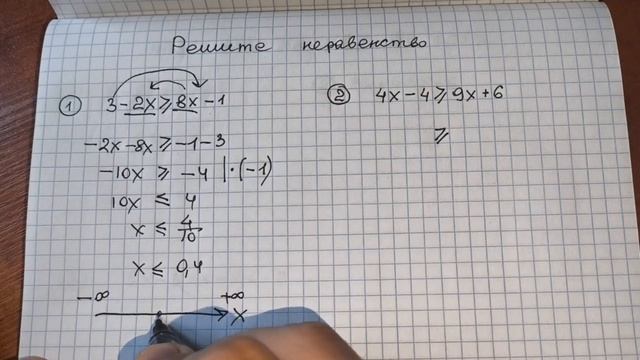 Решите неравенство
1 3 - 2x ⩾ 8x - 1
-2x - 8x ⩾ -1 - 3
-10x ⩾ -4 | · (-1)
10x ≤ 4
x ≤ 4/10
x ≤ 0,4
-∞ +∞
x
2 4x - 4 ⩾ 9x + 6
⩾